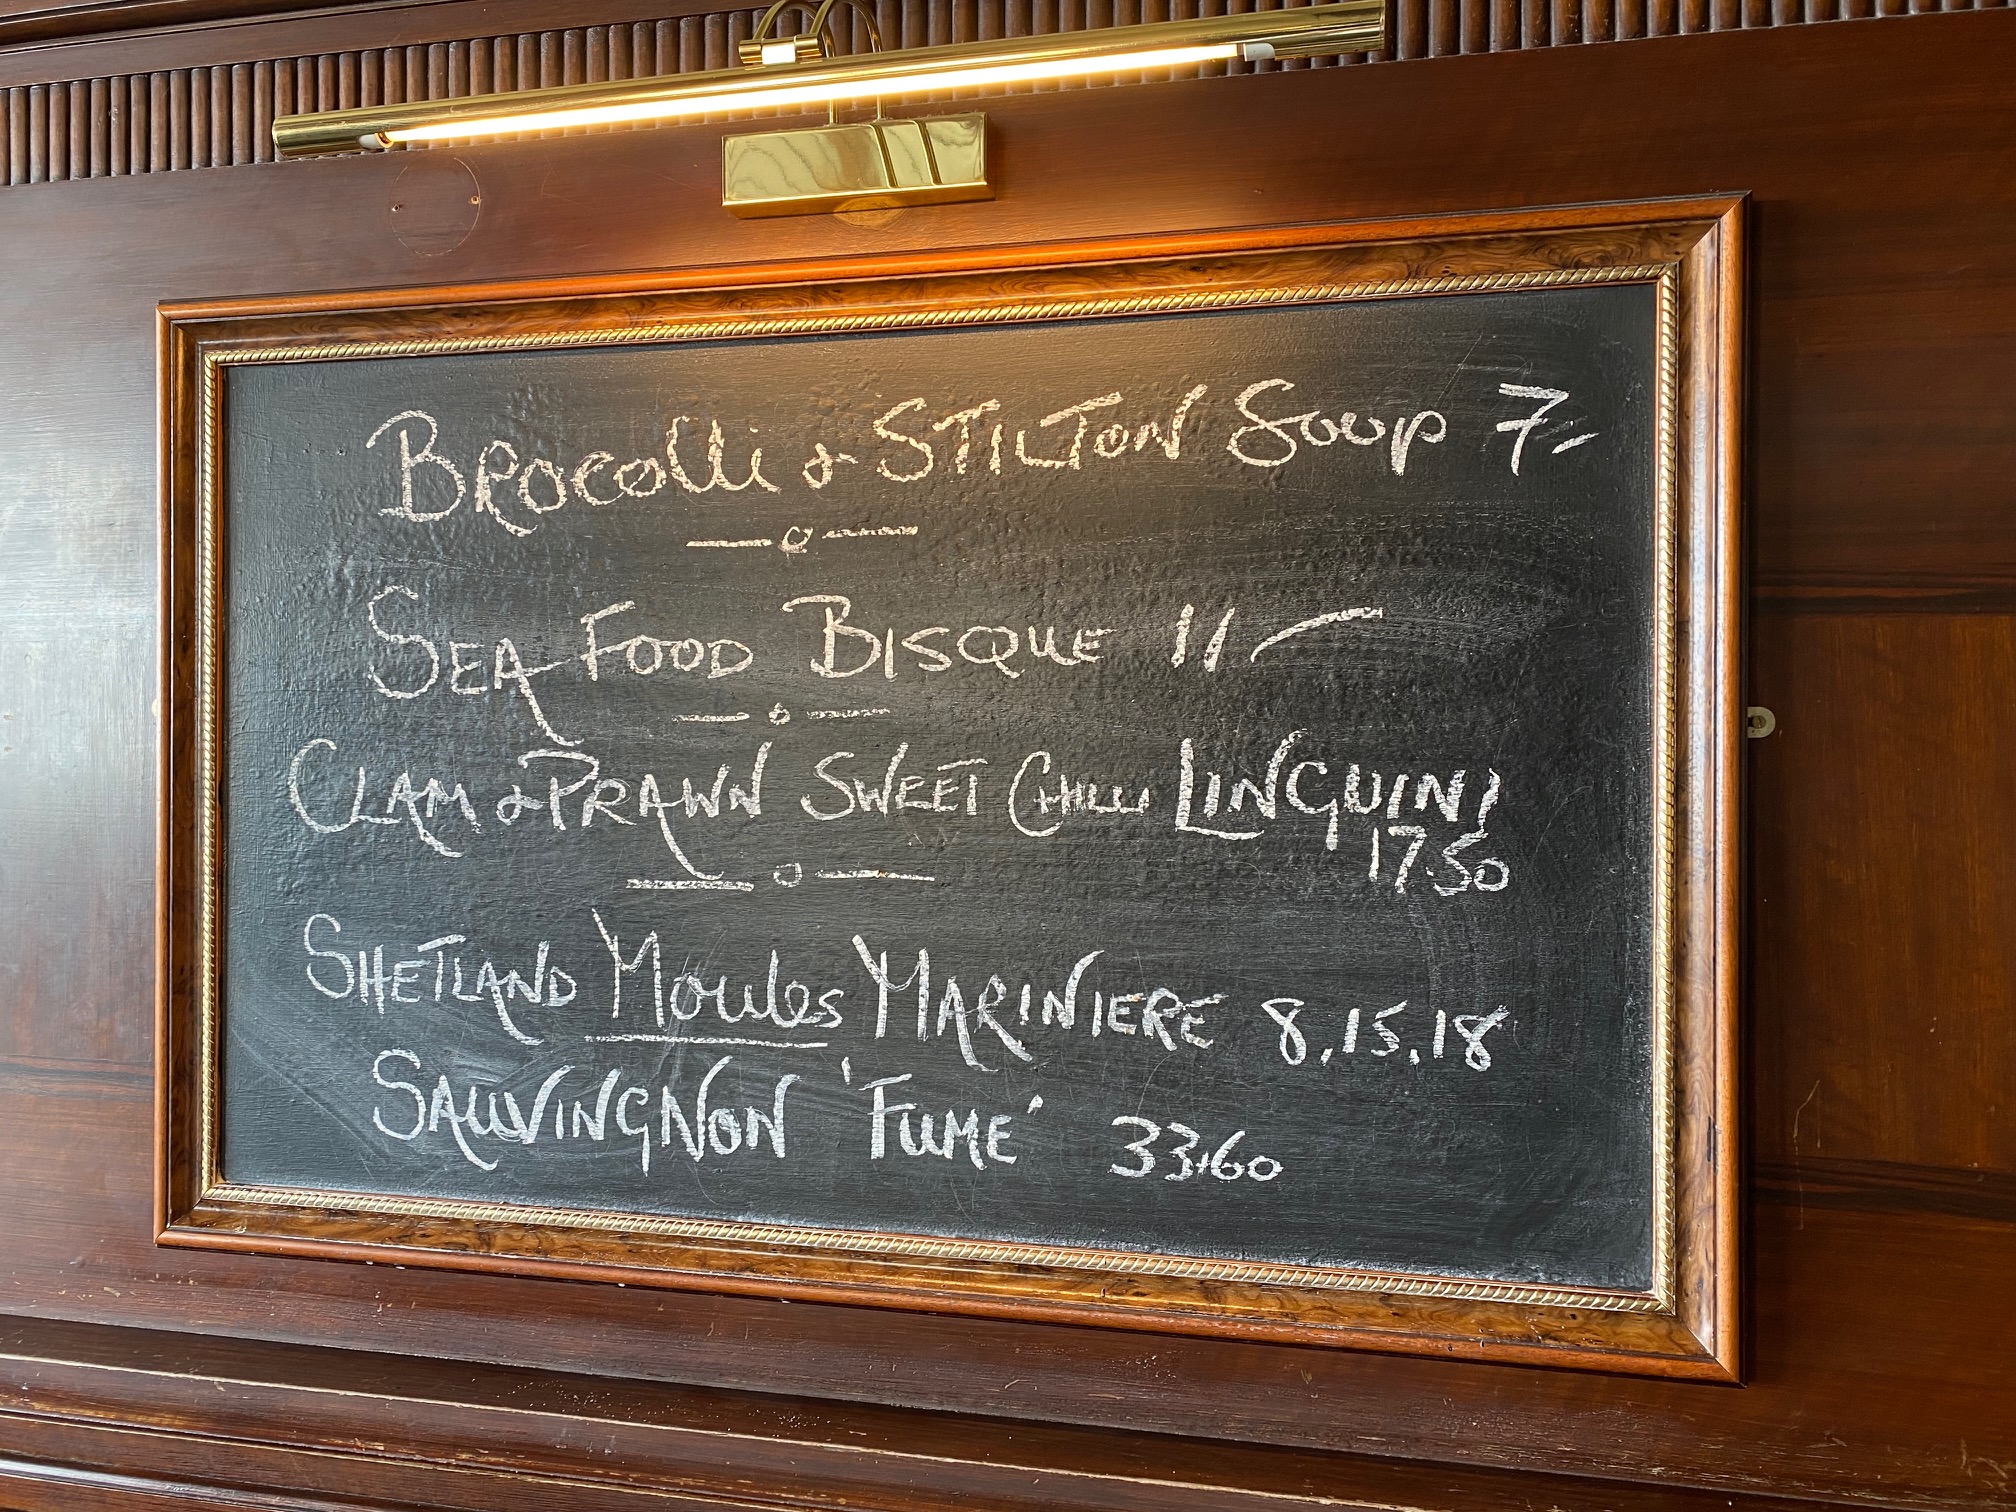 BROCOlli & STILTON Soup 7-
SEA FOOD BISQUE 11-
CLAM & PRAWN SWEET CHILLI LINGUINI
17.50
SHETLAND Moules MARINIERE 8,15,18
SAUVINGNON 'FUME' 33,60